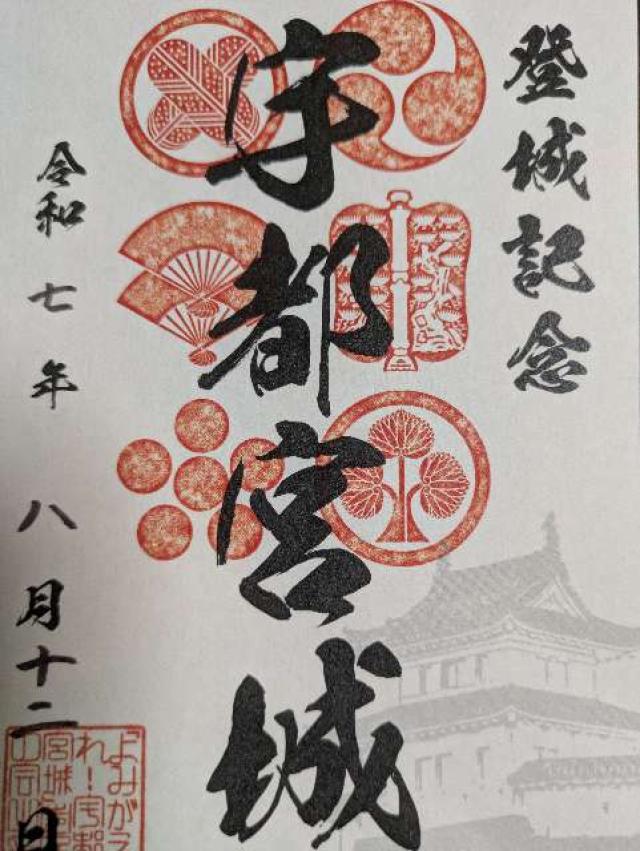 登城記念
宇都宮城
令和七年八月十二日
よみがえ
れ！宇都
宮城